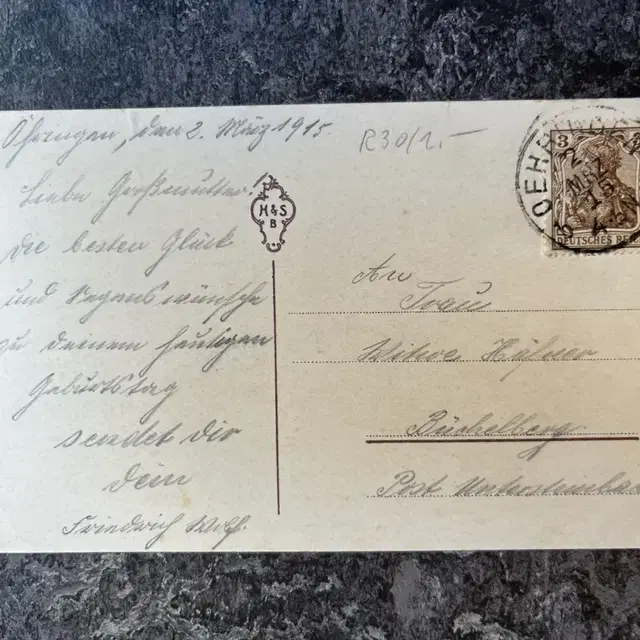 Öhringen, den 2. März 1915
R30/1.-
Liebe Großmutter!
H&S
B
die besten Glück
und Segenswünsche
zu deinem heutigen
Geburtstag
sendet dir
dein
Friedrich
An
Frau
Witwe Häfner
Büchelberg
Post Untersteinba
3
DEUTSCHES
OEH